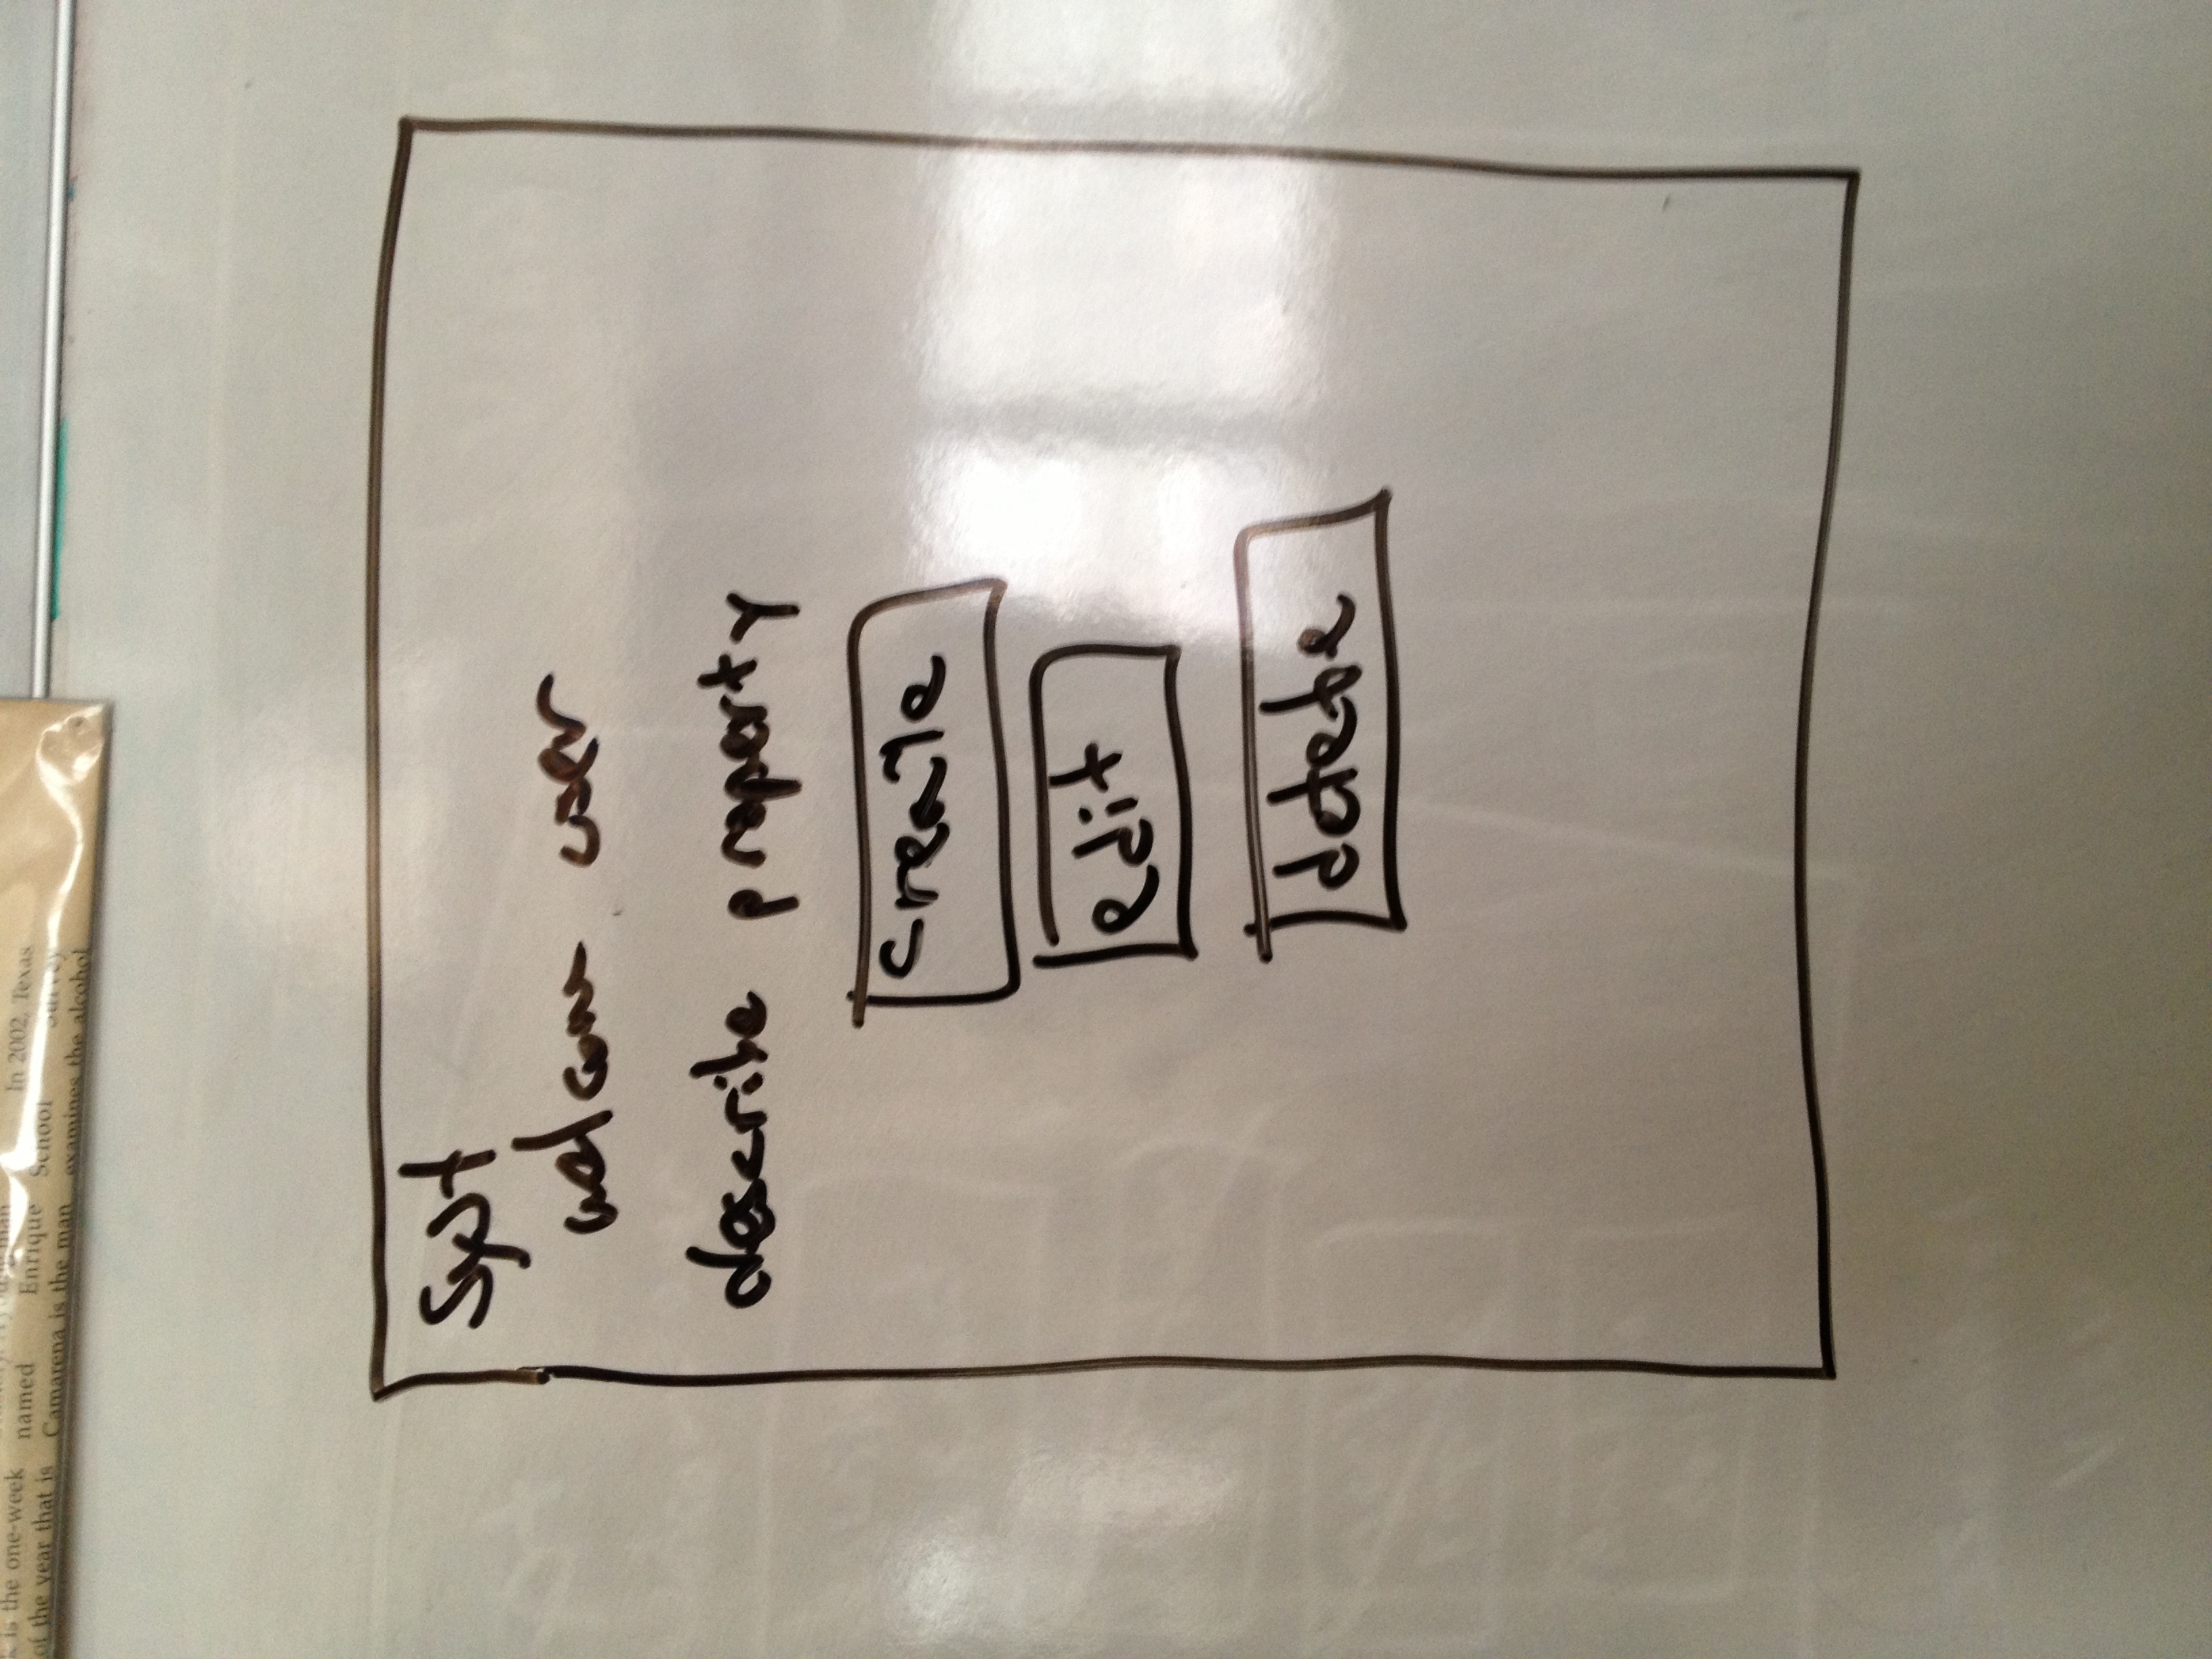 is the one-week
of the year that is
named Enrique
Camarena is the man
In 2002, Texas
School Survey
examines the alcohol
Syst
welcome user
describe property
create
edit